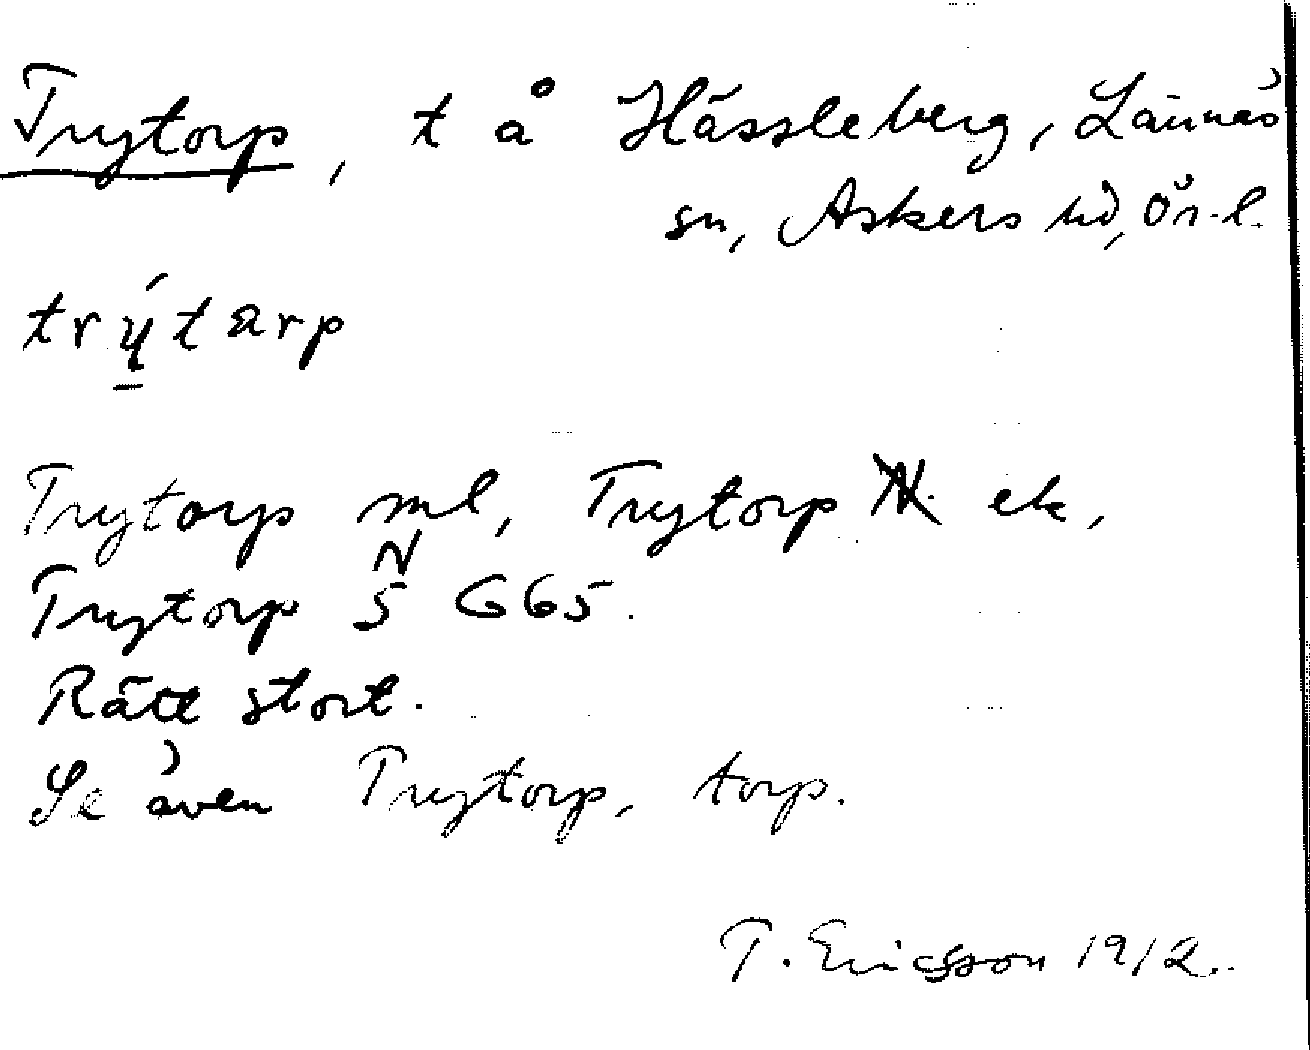 Trytorp, t å Hässleberg, Lännäs
sn, Askers hd, Ör. l.
trýtarp
Trytorp ml, Trytorp N. ek,
Trytorp N
S G65.
Rätt stort.
Se även Trytorp, torp.
T. Ericsson 1912.